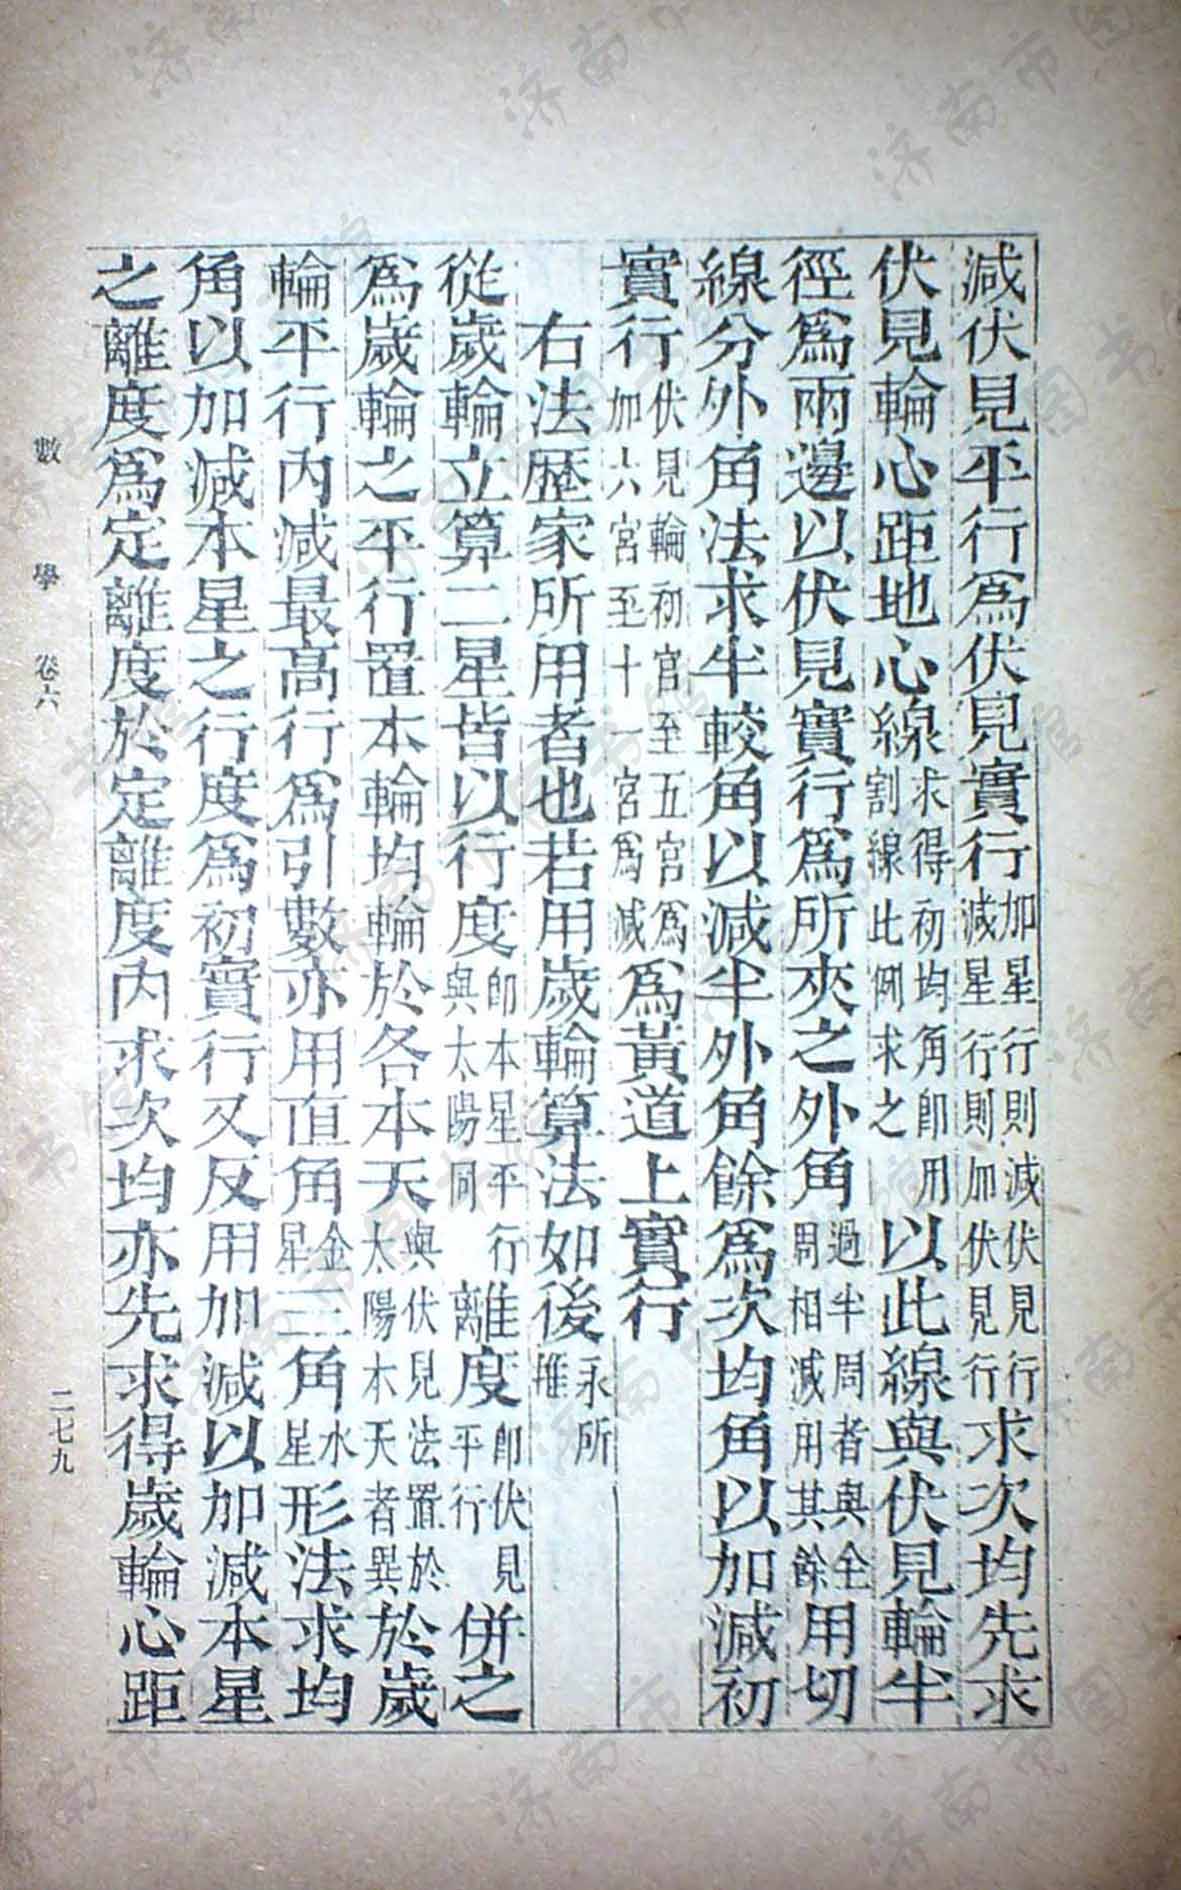 減伏見平行爲伏見實行加星行則減伏見行減星行則加伏見行求次均先求
伏見輪心距地心線求得初均角卽用割線此例求之以此線與伏見輪半
徑爲兩邊以伏見實行爲所夾之外角過半周者與全周相減用其餘用切
線分外角法求半較角以減半外角餘爲次均角以加減初
實行伏見輪初宮至五宮爲加六宮至十一宮爲減爲黃道上實行
右法歷家所用者也若用歲輪算法如後永所推
從歲輪立算二星皆以行度卽本星平行與太陽同離度卽伏見平行併之
爲歲輪之平行置本輪均輪於各本天與伏見法置於太陽本天者異於歲
輪平行內減最高行爲引數亦用直角金星三角水星形法求均
角以加減本星之行度爲初實行又反用加減以加減本星
之離度爲定離度於定離度內求次均亦先求得歲輪心距
數學 卷六 二七九
济南市图书馆